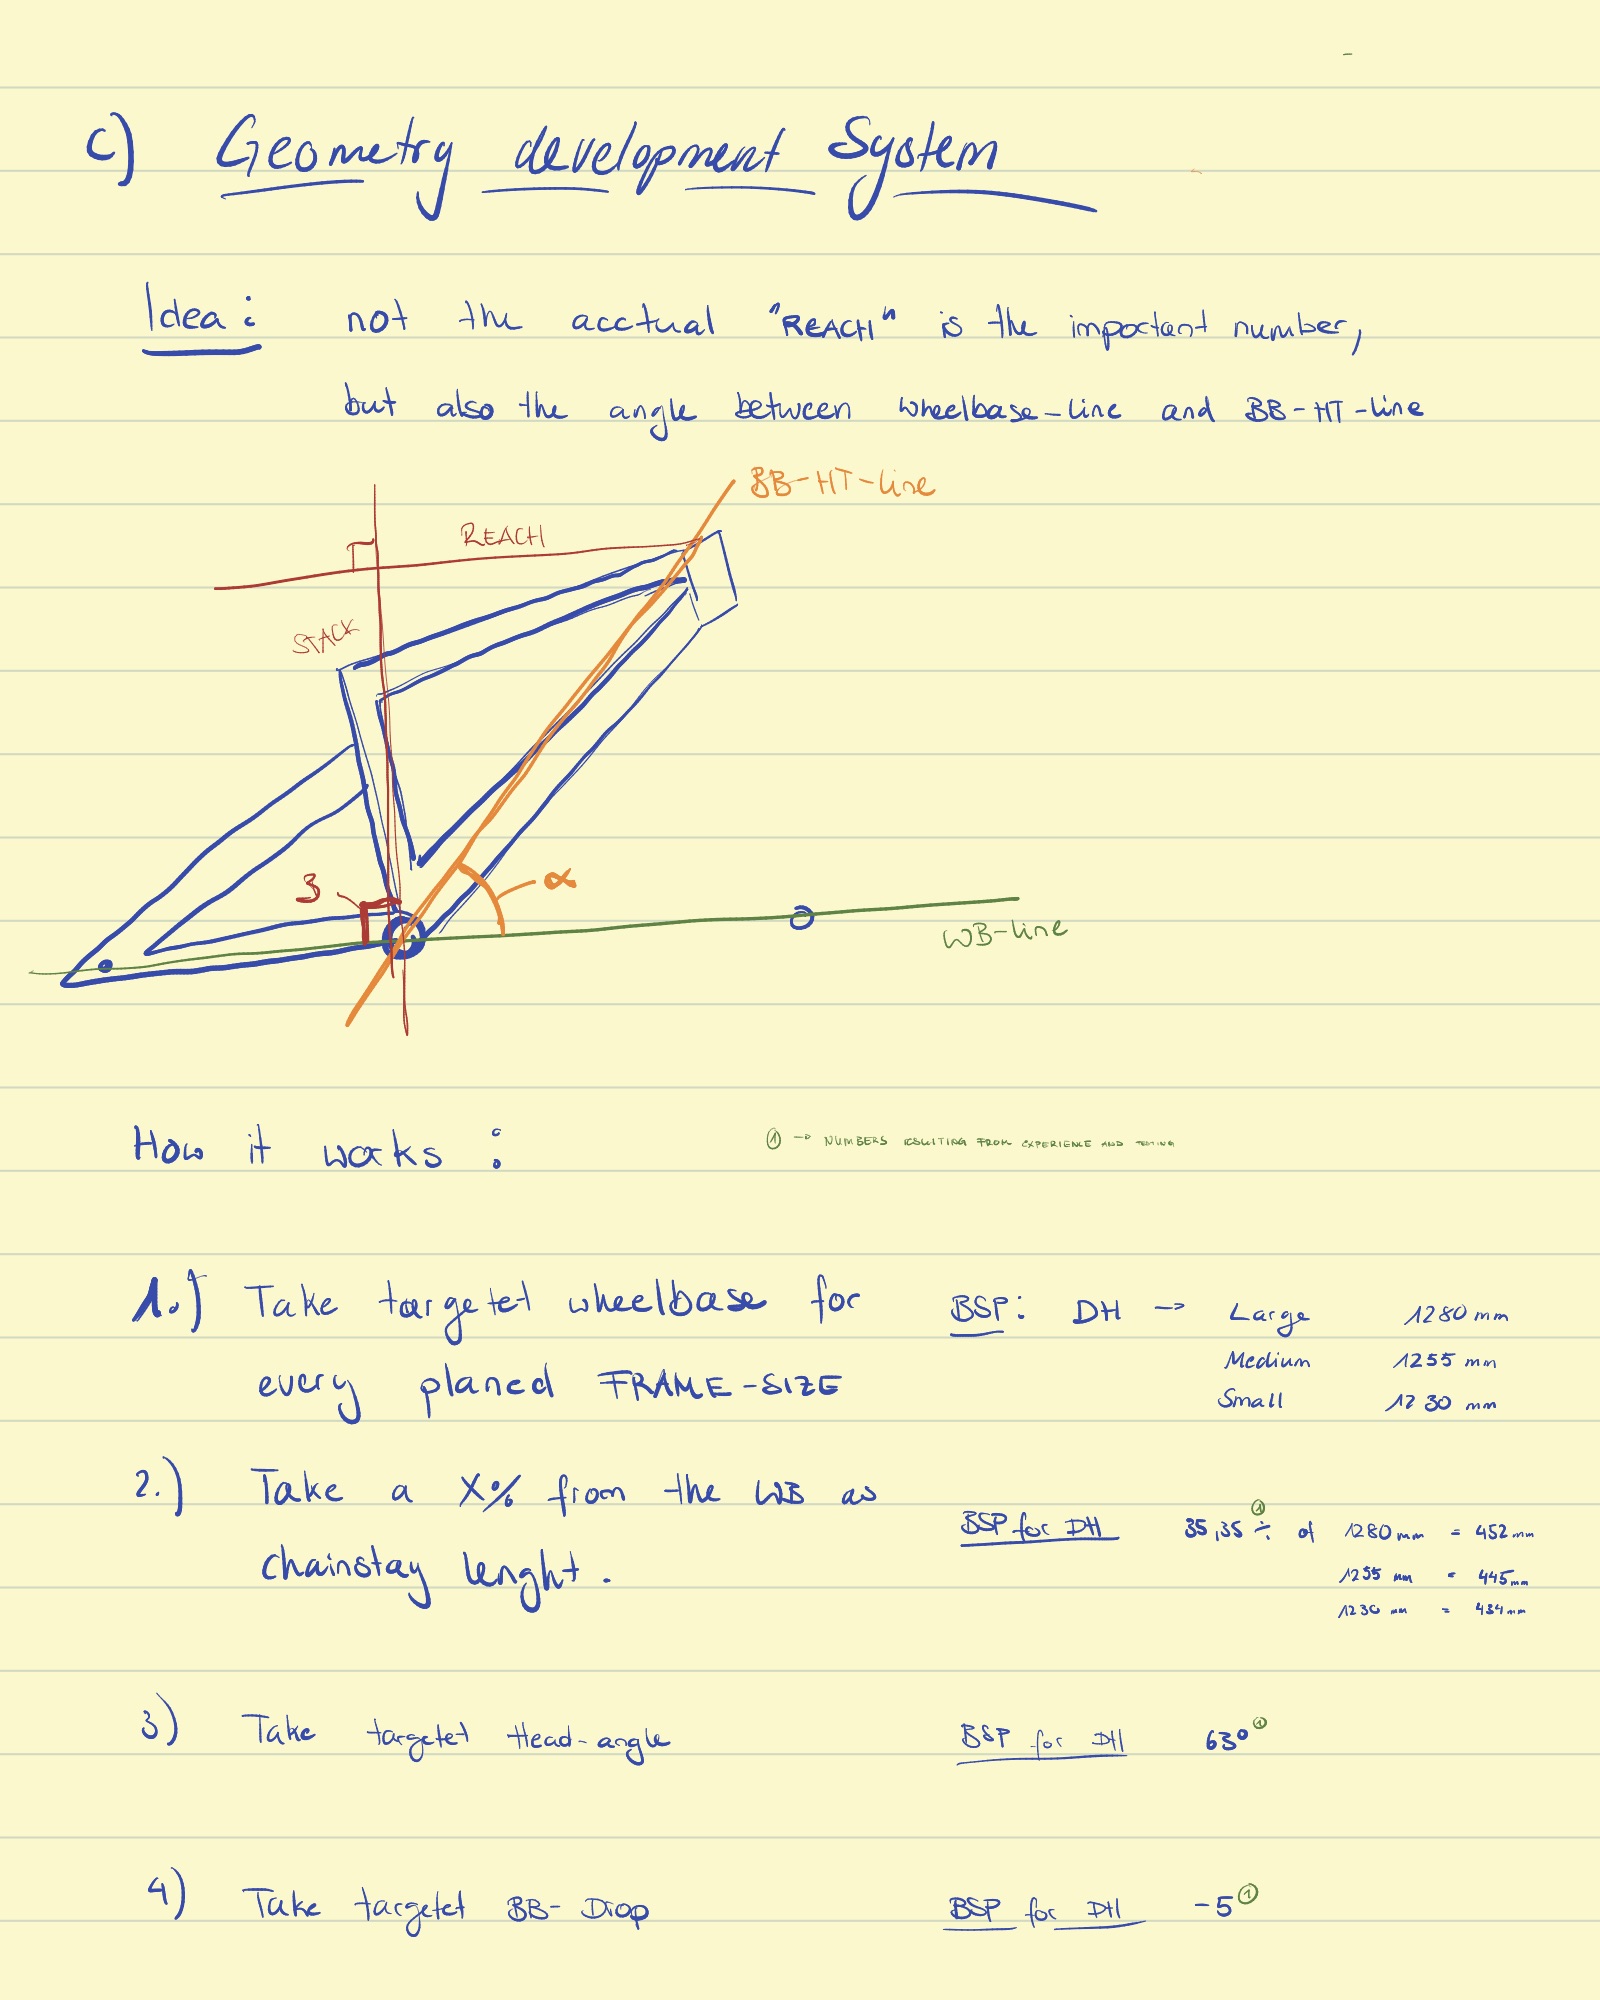 c) Geometry development System
Idea: not the acctual "REACH" is the important number,
but also the angle between wheelbase-line and BB-HT-line
BB-HT-line
REACH
STACK
3
α
WB-line
How it works:
① -> NUMBERS RESULTING FROM EXPERIENCE AND TESTING
1.) Take targetet wheelbase for
every planed FRAME-SIZE
BSP: DH -> Large 1280 mm
Medium 1255 mm
Small 1230 mm
2.) Take a X% from the WB as
chainstay lenght.
BSP for DH 35,35 ÷ ① of 1280 mm = 452 mm
1255 mm = 445 mm
1230 mm = 434 mm
3) Take targetet Head-angle
BSP for DH 63° ①
4) Take targetet BB-Drop
BSP for DH -5 ①